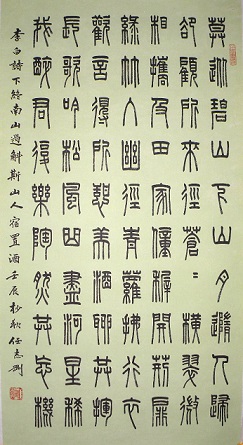 莫從碧山下山月隨人歸
卻顧所來徑蒼〻橫翠微
相攜及田家僮稚開荊扉
綠竹入幽徑青蘿拂行衣
歡言得所憩美酒聊共揮
長歌吟松風曲盡河星稀
我醉君復樂陶然共忘機
李白詩下終南山過斛斯山人宿置酒壬辰杪秋任志